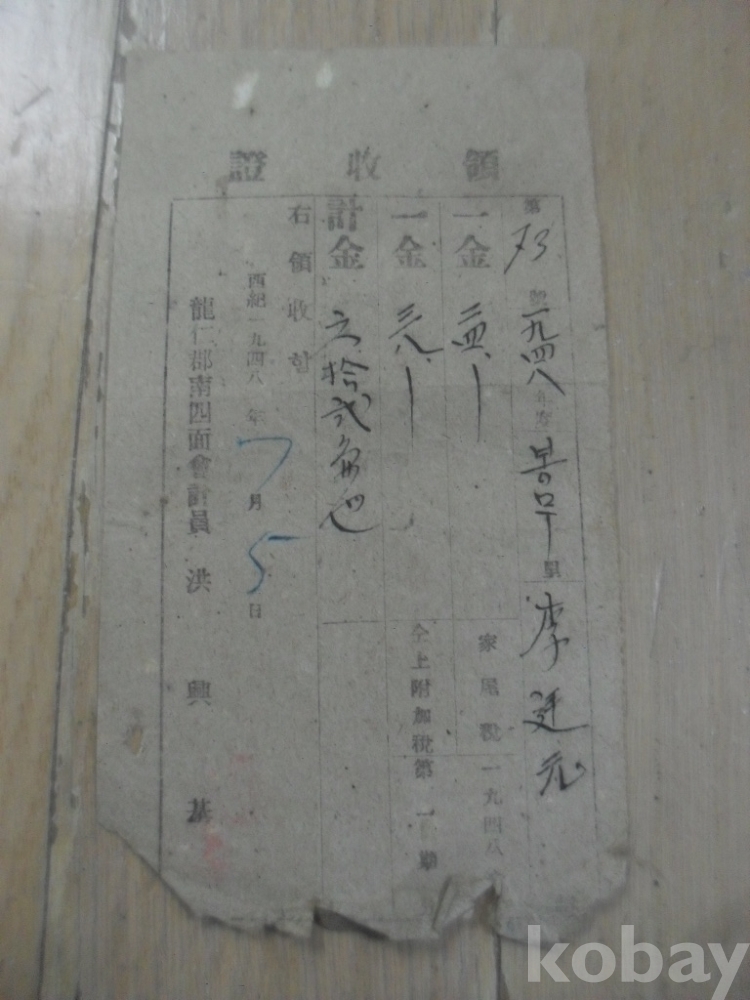 領收證
第 73 號 一九四八年度 봉무里 李廷元
一金 二四、 家屋稅 一九四八
一金 三八、 仝上附加稅 第一期
計金 六拾弐円也
右領收함
西紀一九四八年 7月 5日
龍仁郡南四面會計員 洪興基
kobay